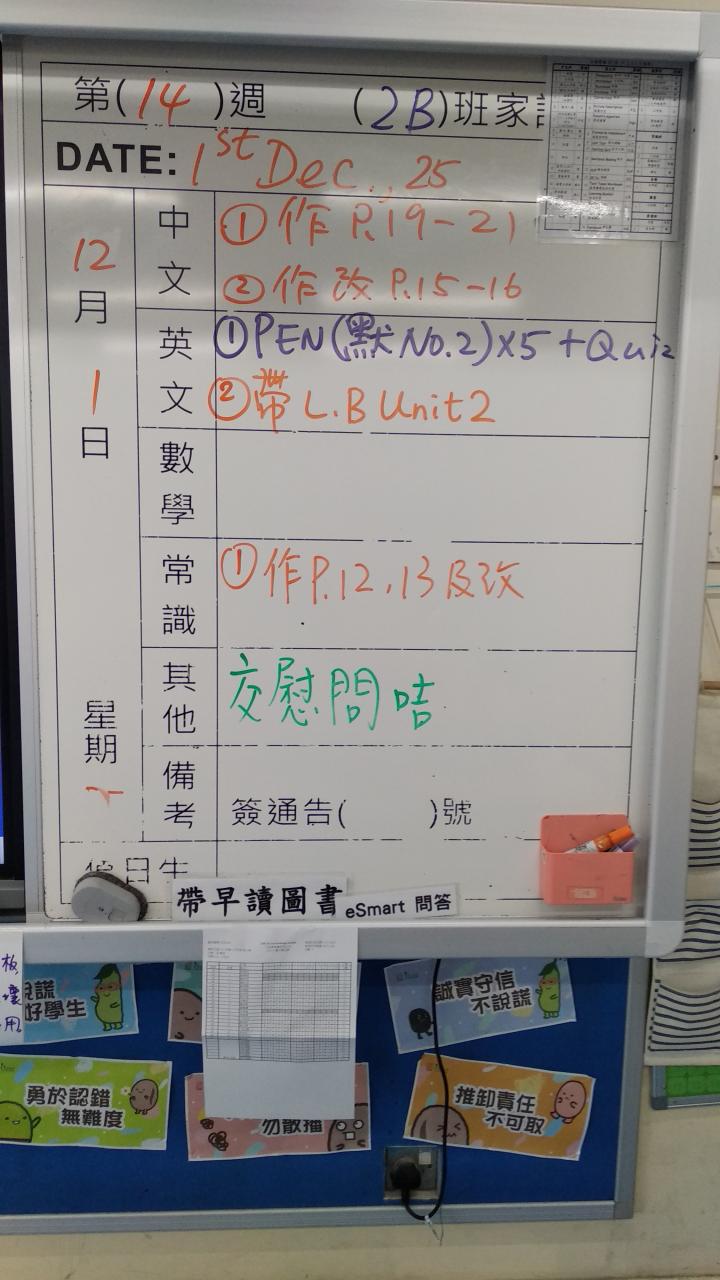 第(14)週 (2B)班家
DATE: 1st Dec., 25
12月1日
星期一
中文
①作P.19-21
②作改P.15-16
英文
①PEN(默No.2)×5+Quiz
②帶L.B Unit2
數學
常識
①作P.12,13及改
其他
交慰問咭
備考
簽通告( )號
帶早讀圖書
eSmart 問答
說謊
好學生
誠實守信
不說謊
勇於認錯
無難度
勿散播
推卸責任
不可取